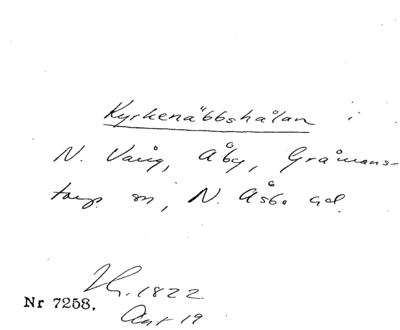 Kyrkenäbbshålan i
N. Vång, Åby, Gråmans-
torps sn, N. Åsbo hd.
Nr 7258.
1822
Akt 19